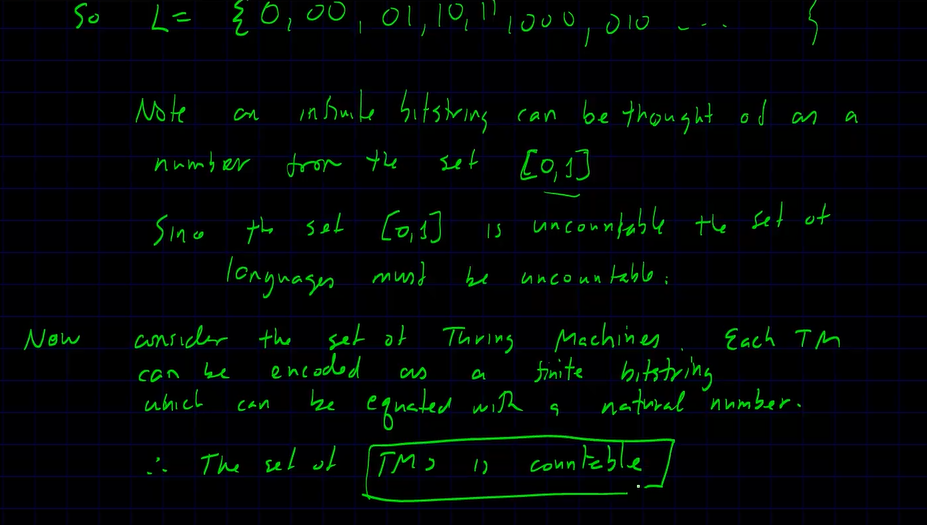 So L = { 0, 00, 01, 10, 11, 000, 010 ... }
Note an infinite bitstring can be thought of as a
number from the set [0,1]
Since the set [0,1] is uncountable the set of
languages must be uncountable.
Now consider the set of Turing Machines. Each TM
can be encoded as a finite bitstring
which can be equated with a natural number.
∴ The set of TMs is countable